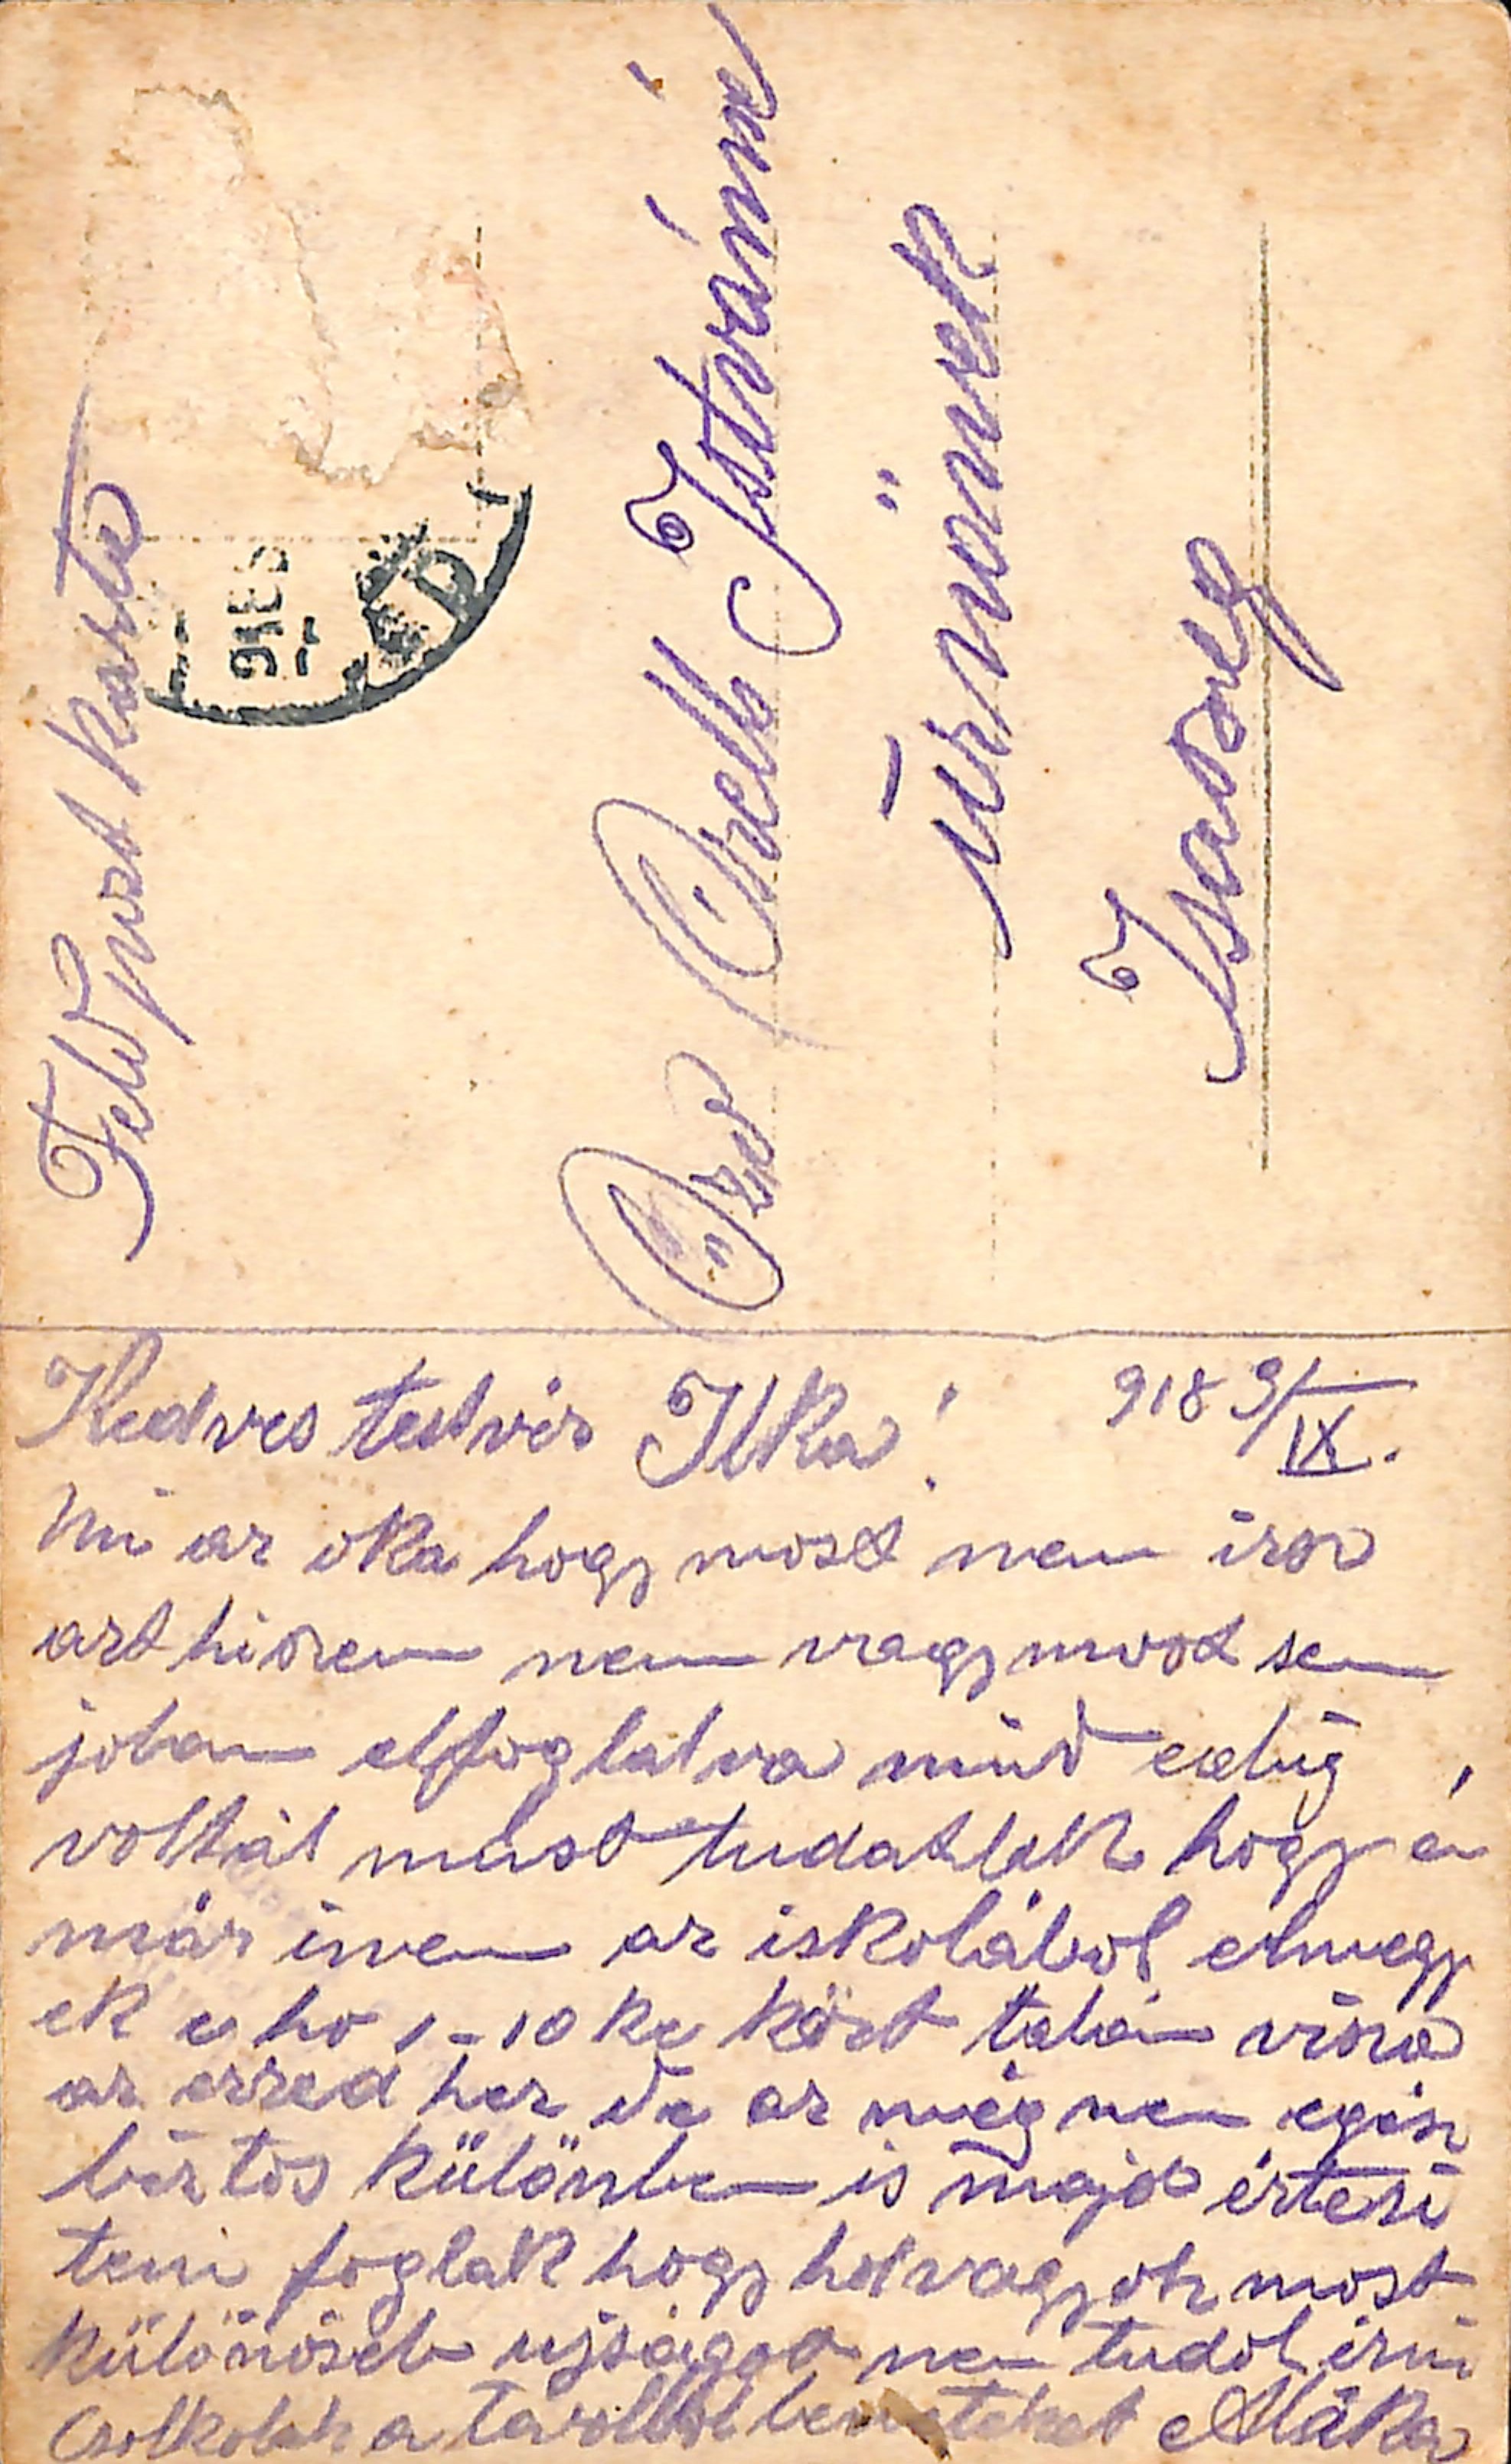 Feldpost Karte
918
D
Özv Orelb Istváné
úrnönek
Isaszeg
Kedves testvér Ilka!
918 9/IX.
Mi az oka hogy most nem irsz
azt hiszem nem vagy most sem
joban elfoglalva mind eedig
voltál most tudatlak hogy én
már inen az iskolábol elmegy
ek e ho 1-10 ke közt talán visza
az ezred hez de az még nem egész
biztos különben is majd értesi
teni foglak hogy hol vagyok most
különöseb ujságot nem tudok irni
Csolkolak a távolbol benneteket Máka